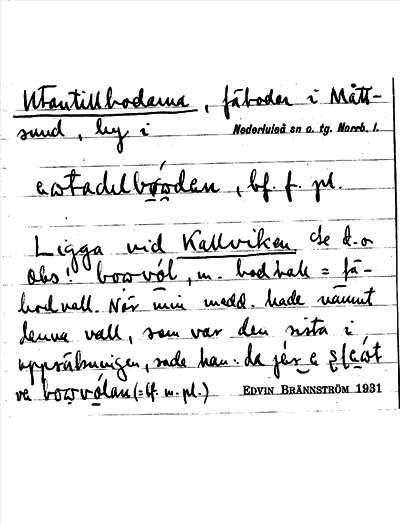 Utantillbodarna, fäbodar i Mått-
sund, by i Nederluleå sn o. tg. Norrb. l.
bf. f. pl.
Ligga vid Kallviken. Se d. o
Obs! m. bodvall = fä-
bodvall. När min medd. hade nämnt
denna vall, som var den sista i
uppräkningen, sade han: da
(= bf. m. pl.) EDVIN BRÄNNSTRÖM 1931